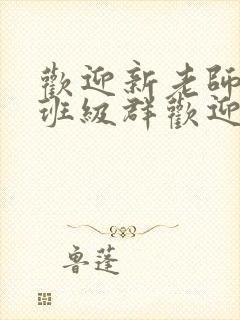 歡迎新老師
班級群歡迎
魯蓬